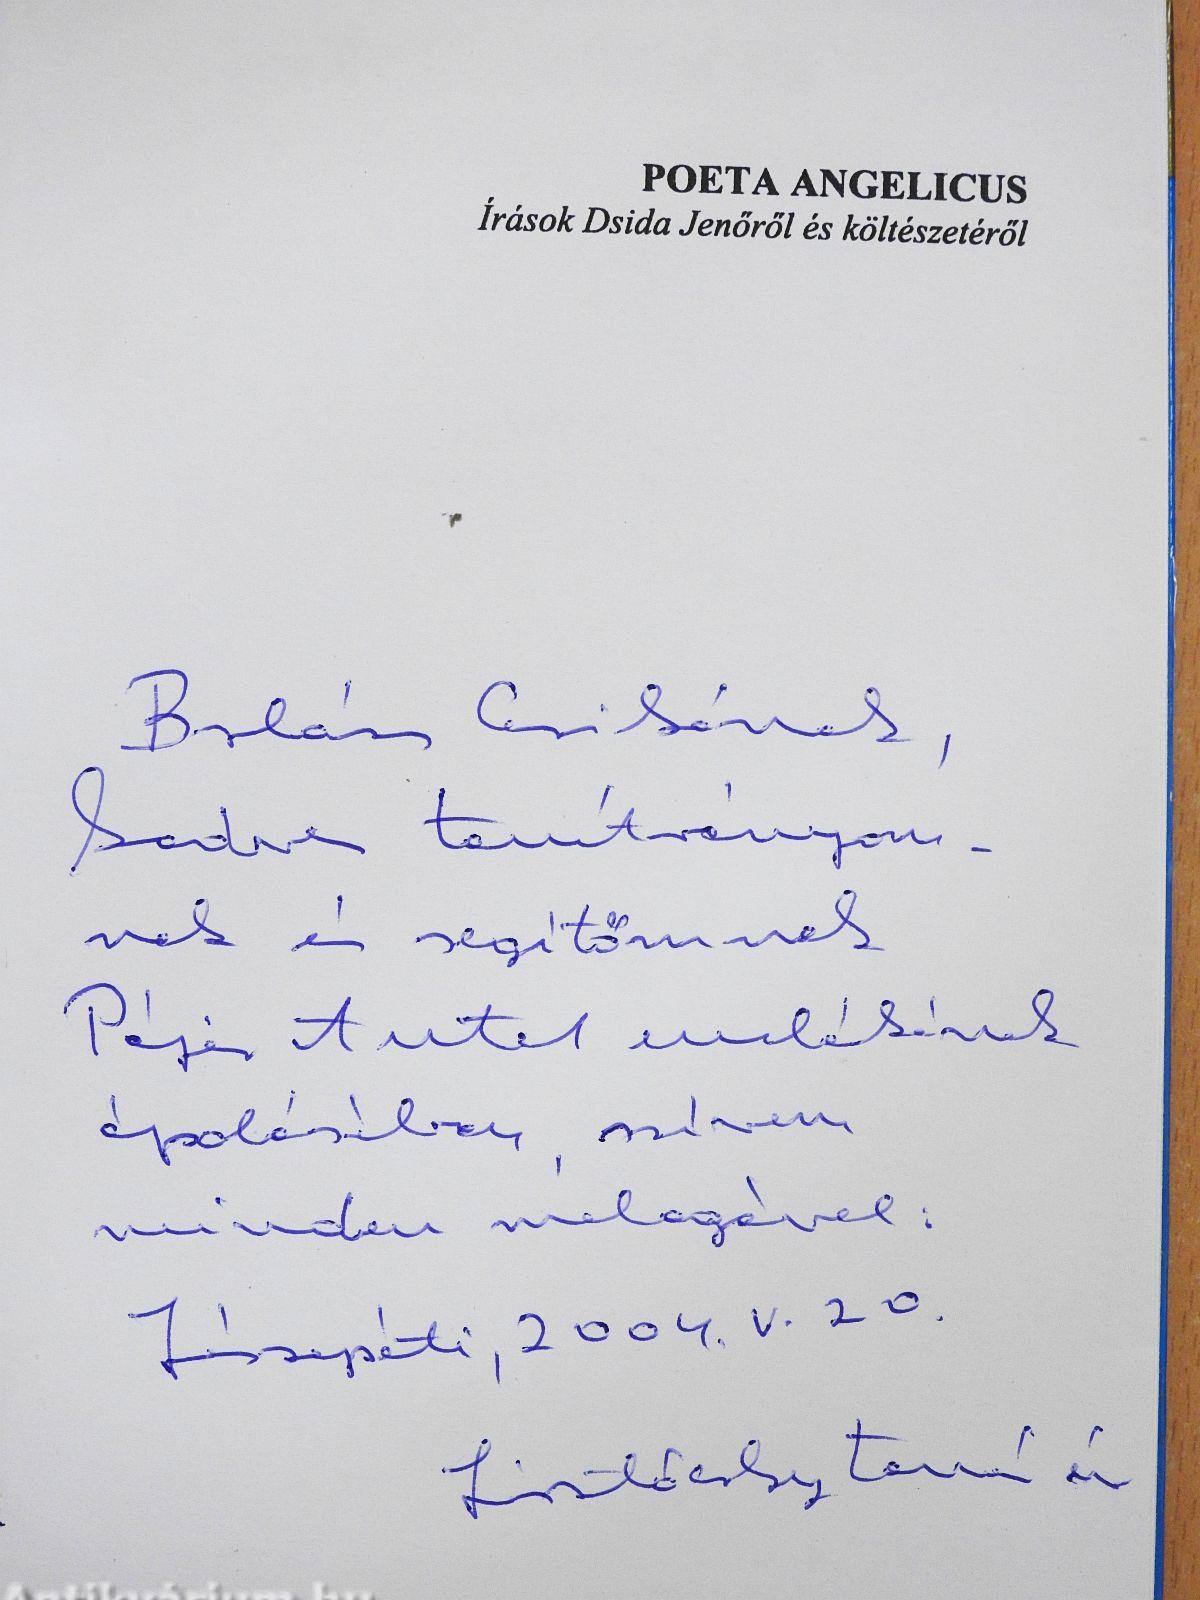 POETA ANGELICUS
Írások Dsida Jenőről és költészetéről
Balázs Csikének,
kedves tanítványom-
nak és segítőmnek
Páger Antal emlékének
ápolásában, szívem
minden melegével:
2004. V. 20.
Lisztóczky tanár úr
Antikvárium.hu